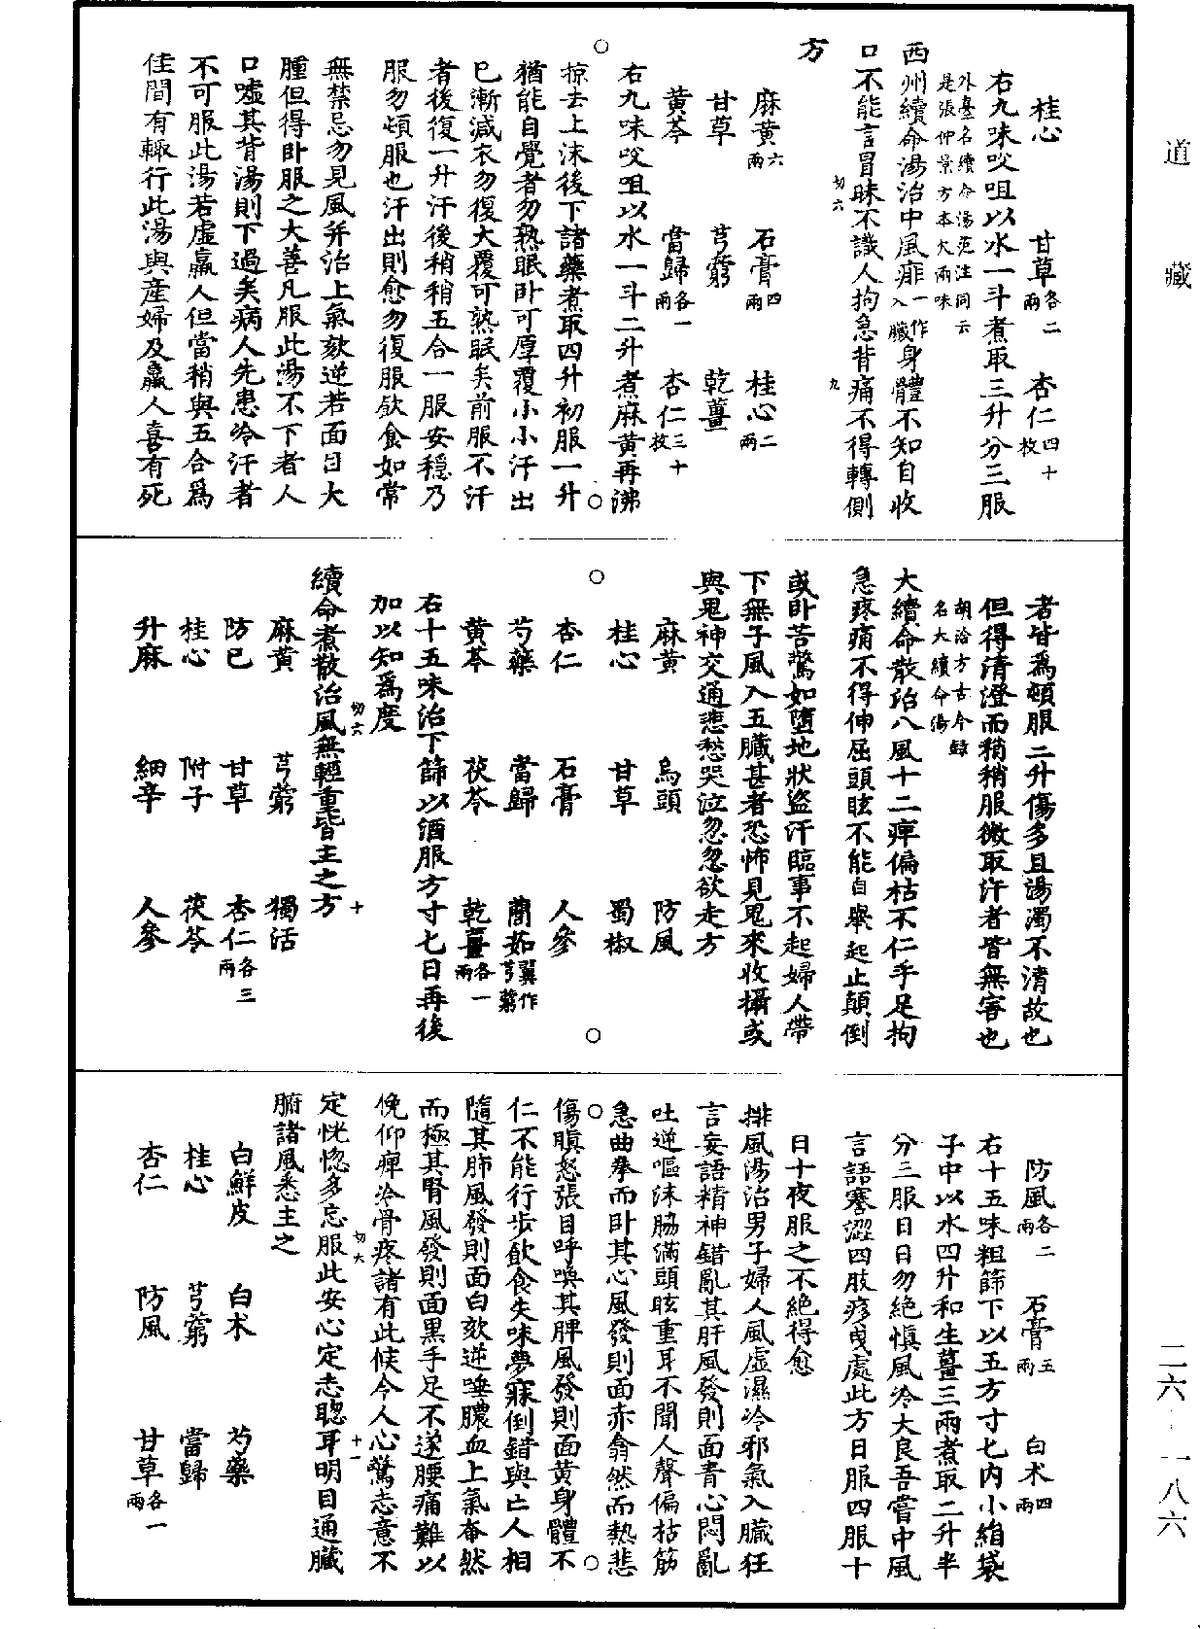 道藏
桂心　甘草各二兩　杏仁四十枚
右九味㕮咀以水一斗煮取三升分三服
外臺名續命湯范汪同云是張仲景方本欠兩味
西州續命湯治中風痱一作入臟身體不知自收
口不能言冒昧不識人拘急背痛不得轉側
切六　九
方
麻黃六兩　石膏四兩　桂心二兩
甘草　芎藭　乾薑
黃芩　當歸各一兩　杏仁三十枚
右九味㕮咀以水一斗二升煮麻黃再沸
掠去上沫後下諸藥煮取四升初服一升
猶能自覺者勿熟眠卧可厚覆小小汗出
已漸減衣勿復大覆可熟眠矣前服不汗
者後復一升汗後稍稍五合一服安穩乃
服勿頓服也汗出則愈勿復服飲食如常
無禁忌勿見風并治上氣欬逆若面目大
腫但得卧服之大善凡服此湯不下者人
口噓其背湯則下過矣病人先患冷汗者
不可服此湯若虛羸人但當稍與五合爲
佳間有輙行此湯與産婦及羸人喜有死
者皆爲頓服二升傷多且湯濁不清故也
但得清澄而稍稍服微取汗者皆無害也
胡洽方古今錄名大續命湯
大續命散治八風十二痺偏枯不仁手足拘
急疼痛不得伸屈頭眩不能自舉起止顛倒
或卧苦驚如墮地狀盜汗臨事不起婦人帶
下無子風入五臟甚者恐怖見鬼來收攝或
與鬼神交通悲愁哭泣忽忽欲走方
麻黃　烏頭　防風
桂心　甘草　蜀椒
杏仁　石膏　人參
芍藥　當歸　䕡茹翼作芎藭
黃芩　茯苓　乾薑各一兩
右十五味治下篩以酒服方寸七日再後
加以知爲度
續命煮散治風無輕重皆主之方
切六　十
麻黃　芎藭　獨活
防已　甘草　杏仁各三兩
桂心　附子　茯苓
升麻　細辛　人參
防風各二兩　石膏五兩　白术四兩
右十五味粗篩下以五方寸七内小絹袋
子中以水四升和生薑三兩煮取二升半
分三服日日勿絶慎風冷大良吾嘗中風
言語謇澀四肢疼曳處此方日服四服十
日十夜服之不絶得愈
排風湯治男子婦人風虛濕冷邪氣入臟狂
言妄語精神錯亂其肝風發則面青心悶亂
吐逆嘔沫脇滿頭眩重耳不聞人聲偏枯筋
急曲拳而卧其心風發則面赤翕然而熱悲
傷瞋怒張目呼喚其脾風發則面黃身體不
仁不能行步飲食失味夢寐倒錯與亡人相
隨其肺風發則面白欬逆唾膿血上氣奄然
而極其腎風發則面黑手足不遂腰痛難以
俛仰痺冷骨疼諸有此候令人心驚志意不
切六　十一
定恍惚多忘服此安心定志聰耳明目通臟
腑諸風悉主之
白鮮皮　白术　芍藥
桂心　芎藭　當歸
杏仁　防風　甘草各一兩
二六—一八六